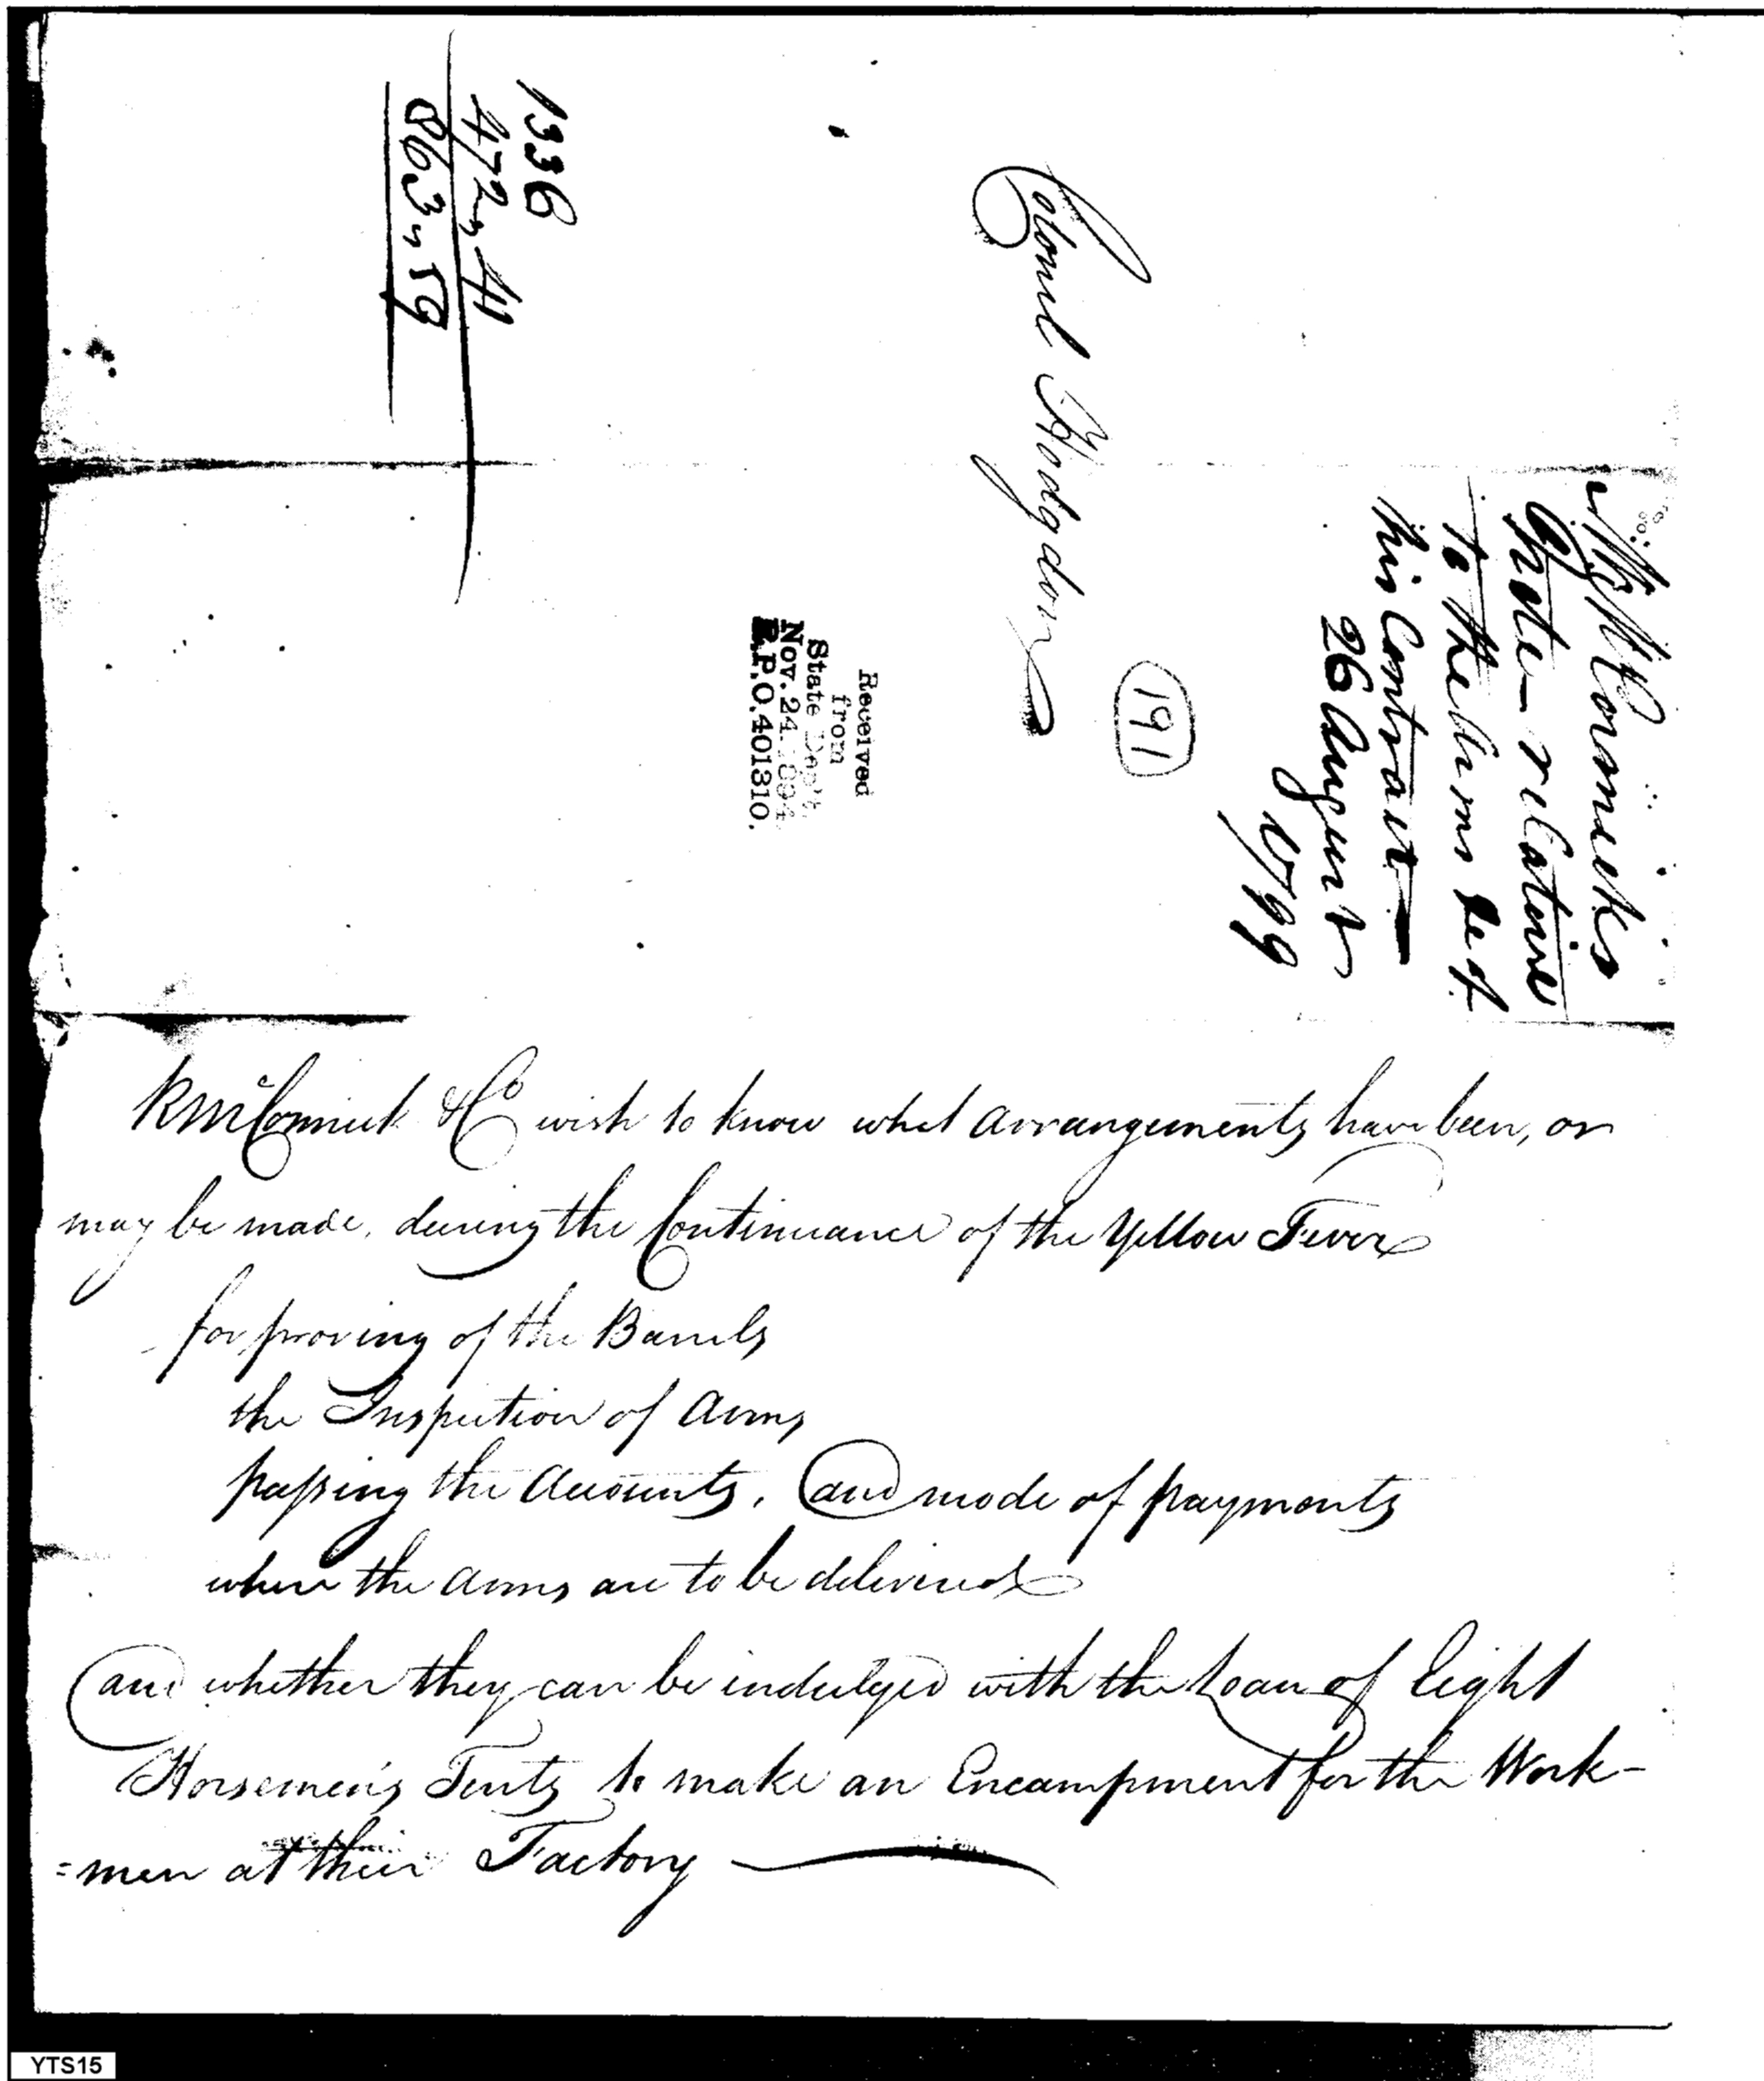 1336
472,,41
863,,59
Colonel Hodgdon
Received
from
State Dep't.
Nov. 24. 1894.
R.P.O. 401310.
191
McCormicks
Note — relative
to the Arms &c
his Contract —
26 August
1799
R McCormick & Co wish to know what arrangements have been, or
may be made, during the Continuance of the Yellow Fever
for proving of the Barrels
the Inspection of Arms
passing the Accounts, and mode of payments
where the Arms are to be delivered
and whether they can be indulged with the Loan of Eight
Horsemen's Tents to make an Encampment for the Work-
=men at their Factory
YTS15